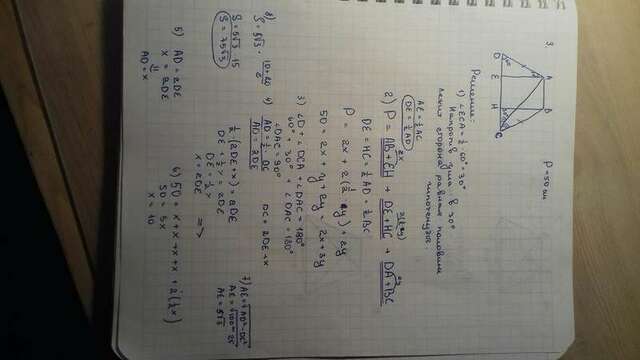 3.
P=50см
Решение:
1) ∠ECA=½·60°=30°
Напротив угла в 30°
лежит сторона равная половине
гипотенузы.
AE=½AC
DE=½AD
2) P = AB+EH + DE+HC + DA+BC
DE=HC=½AD=½BC
P = 2x + 2(½y) + 2y
50 = 2x + y + 2y = 2x+3y
3) ∠D+∠DCA+∠DAC=180°
60°+30°+∠DAC=180°
∠DAC=90°
4) AD=½·DC
DC=2DE+x
AD=2DE
½·(2DE+x)=2DE
DE+½x=2DE
DE=½x =>
x=2DE
5) AD=2DE
x=2DE
AD=x
6) 50=x+x+x+x+2(½x)
50=5x
x=10
7) AE=√AD²-DE²
AE=√100-25
AE=5√3
8) S=5√3·(10+20)/2
S=5√3·15
S=75√3